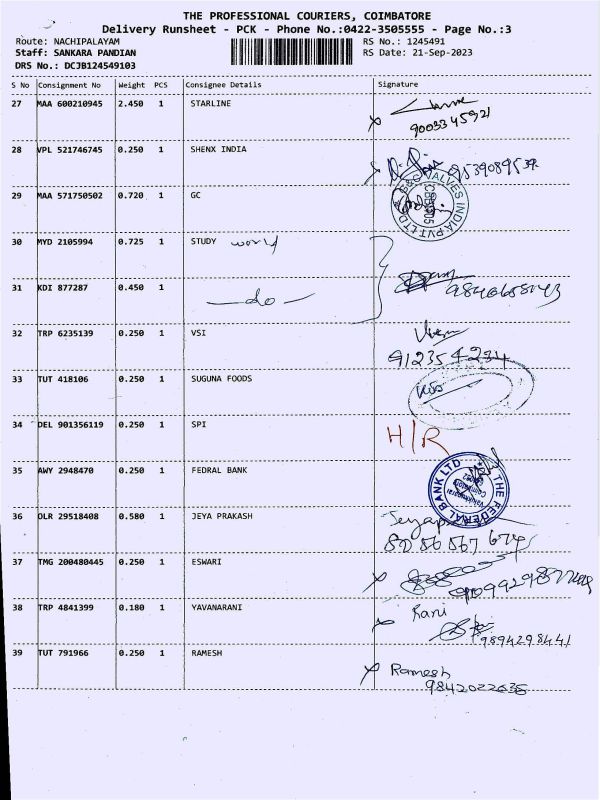 THE PROFESSIONAL COURIERS, COIMBATORE
Delivery Runsheet - PCK - Phone No.:0422-3505555 - Page No.:3
Route: NACHIPALAYAM RS No.: 1245491
Staff: SANKARA PANDIAN RS Date: 21-Sep-2023
DRS No.: DCJB124549103
S No Consignment No Weight PCS Consignee Details Signature
27 MAA 600210945 2.450 1 STARLINE
9003345921
28 VPL 521746745 0.250 1 SHENX INDIA
29 MAA 571750502 0.720 1 GC
VALVES INDIA PVT LTD
30 MYD 2105994 0.725 1 STUDY world
31 KDI 877287 0.450 1
—do—
32 TRP 6235139 0.250 1 VSI
33 TUT 418106 0.250 1 SUGUNA FOODS
34 DEL 901356119 0.250 1 SPI H/R
35 AWY 2948470 0.250 1 FEDRAL BANK
THE FEDERAL BANK LTD
36 OLR 29518408 0.580 1 JEYA PRAKASH
37 TMG 200480445 0.250 1 ESWARI
38 TRP 4841399 0.180 1 YAVANARANI Rani
9894298441
39 TUT 791966 0.250 1 RAMESH
Ramesh
9842022635